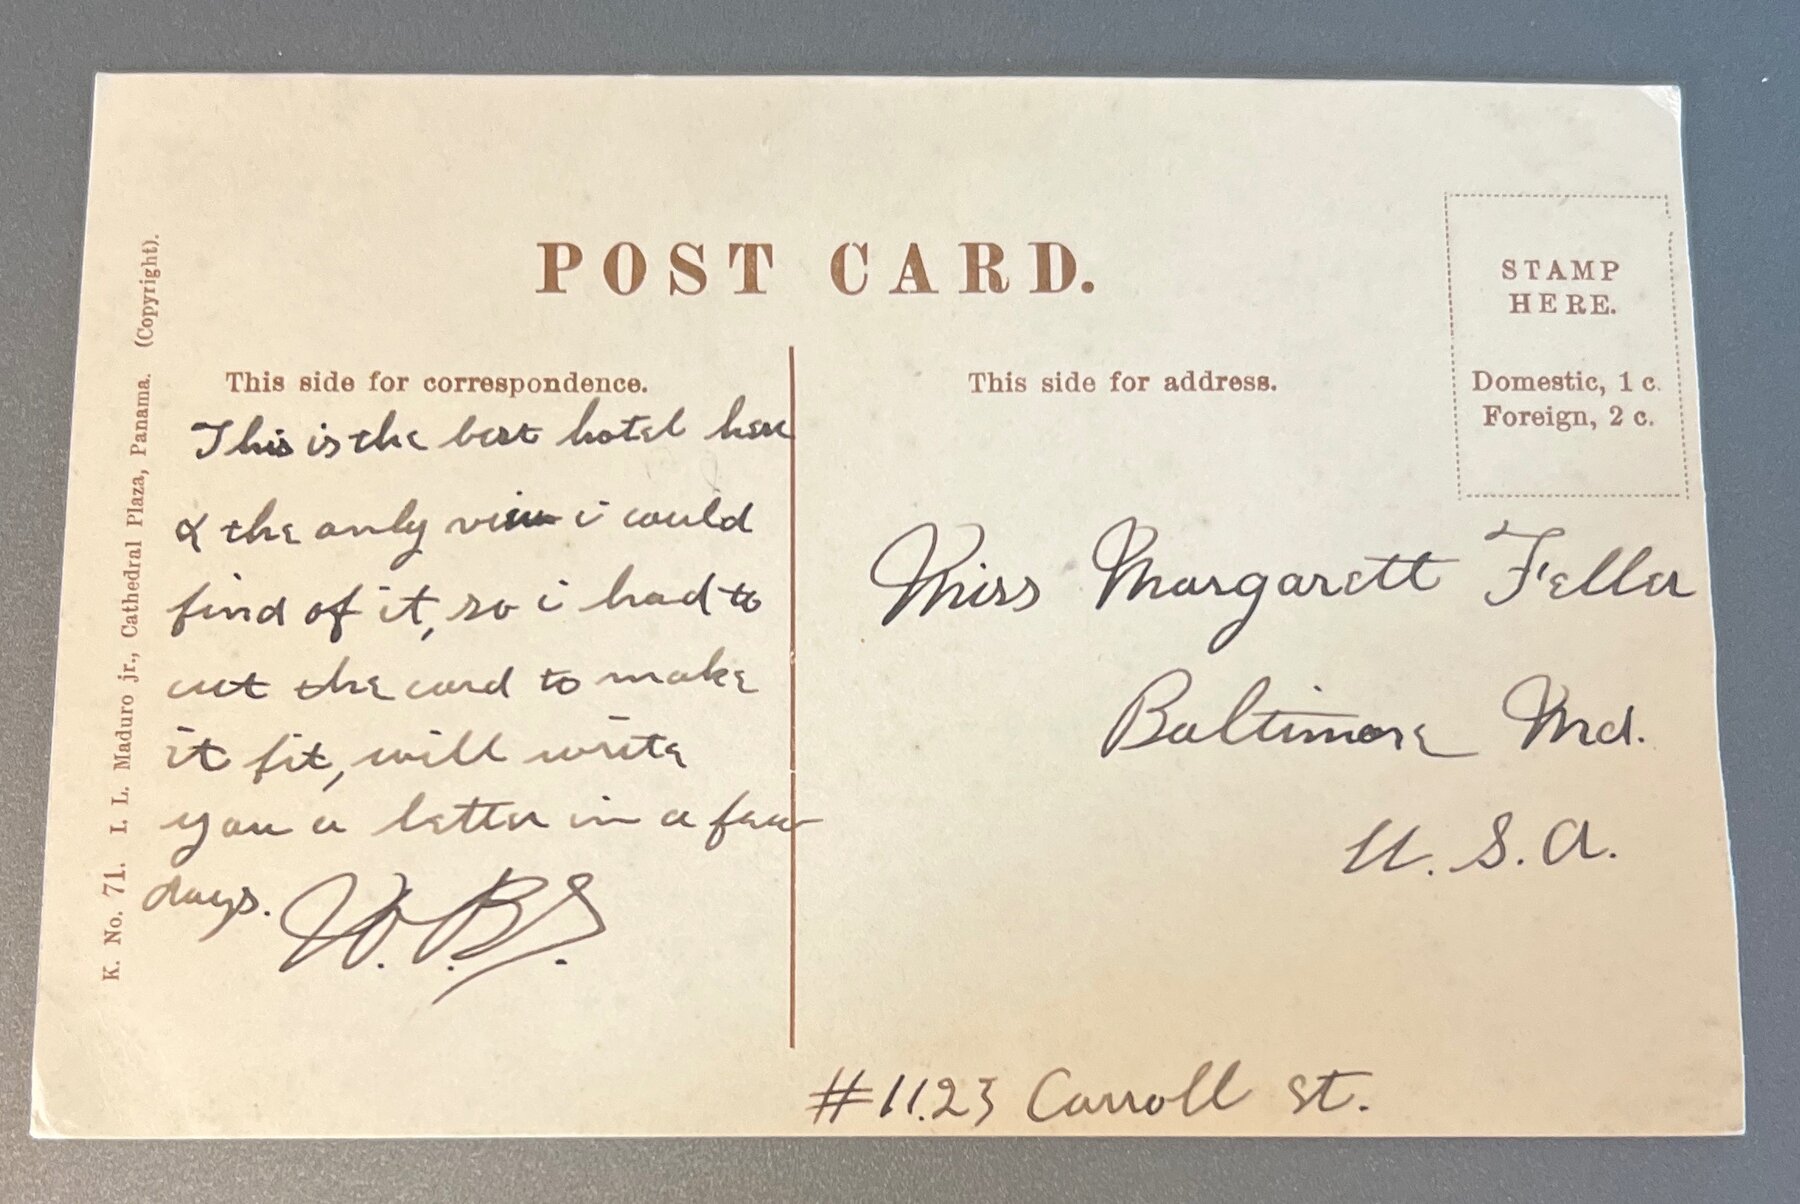 POST CARD.
STAMP
HERE.
Domestic, 1 c.
Foreign, 2 c.
K. No. 71. I. L. Maduro jr., Cathedral Plaza, Panama. (Copyright).
This side for correspondence.
This is the best hotel here
& the only view i could
find of it, so i had to
cut the card to make
it fit, will write
you a letter in a few
days. W.B.S.
This side for address.
Miss Margarett Feller
Baltimore Md.
U.S.A.
#1123 Carroll St.